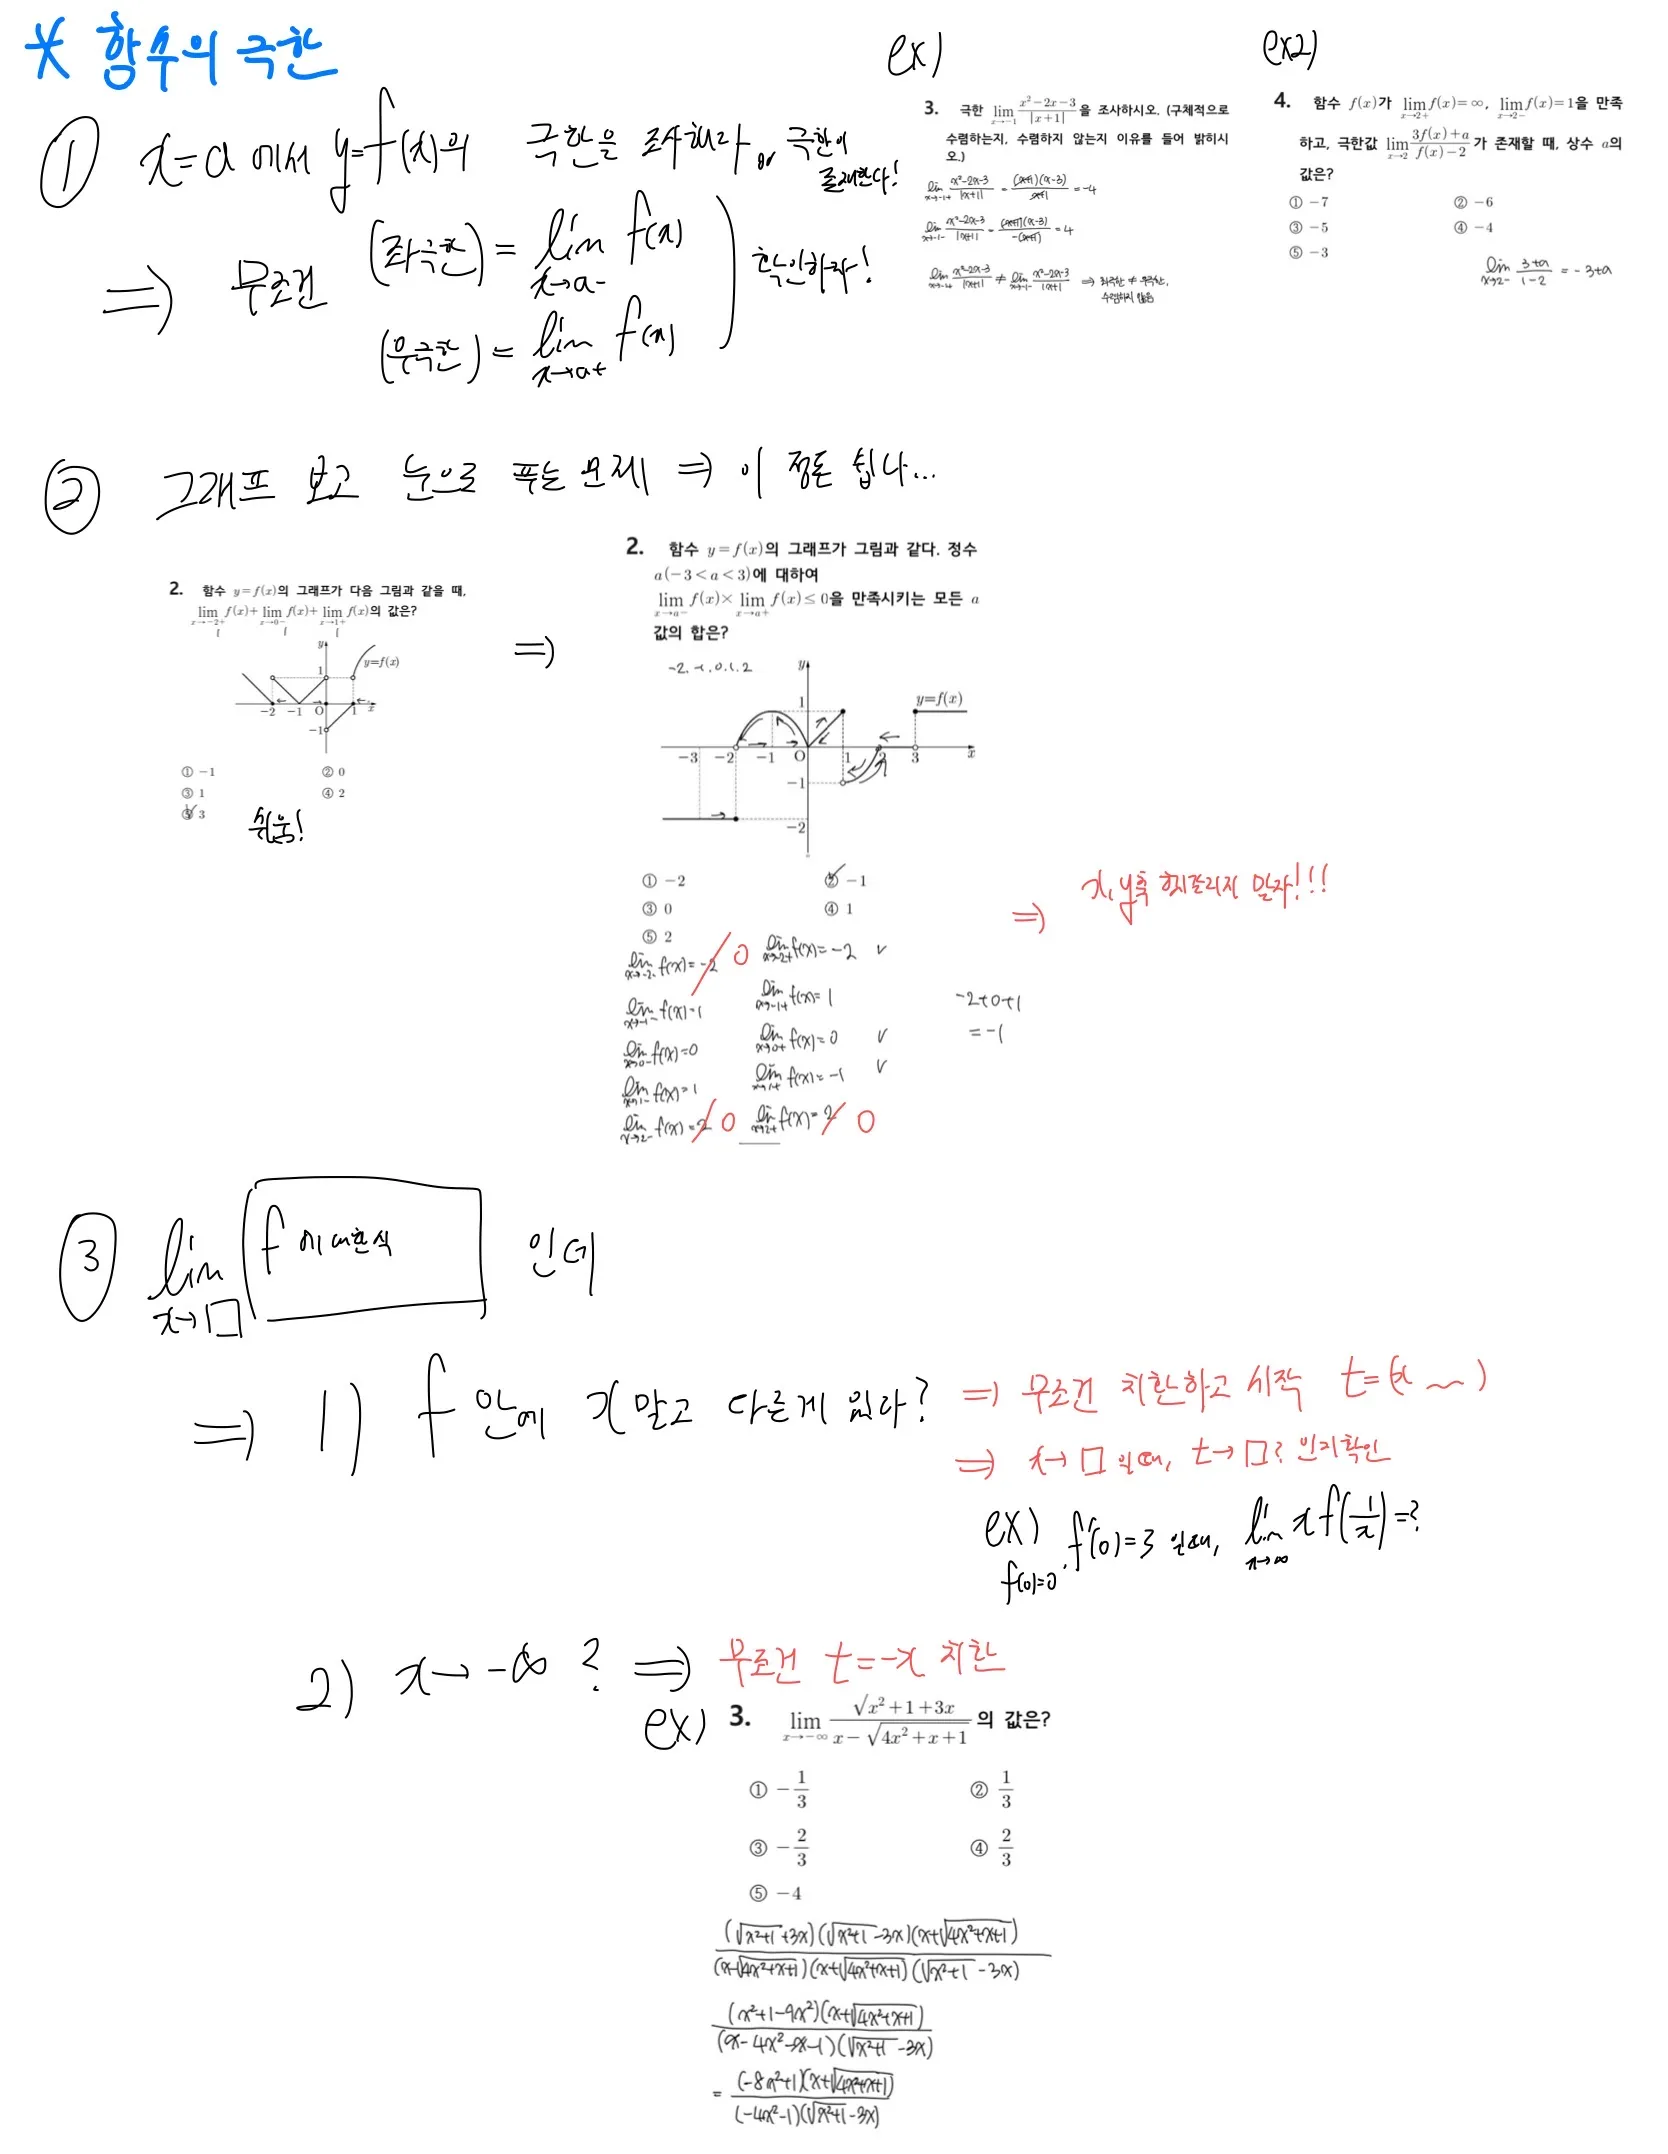 * 함수의 극한
① x=a 에서 y=f(x)의 극한을 조사해라 or 극한이 존재한다!
⇒ 무조건 (좌극한) = lim x→a- f(x)
(우극한) = lim x→a+ f(x)
확인하자!
ex)
3. 극한 lim x→-1 (x²-2x-3)/|x+1| 을 조사하시오. (구체적으로
수렴하는지, 수렴하지 않는지 이유를 들어 밝히시
오.)
lim x→-1+ (x²-2x-3)/|x+1| = (x+1)(x-3)/(x+1) = -4
lim x→-1- (x²-2x-3)/|x+1| = (x+1)(x-3)/-(x+1) = 4
lim x→-1+ (x²-2x-3)/|x+1| ≠ lim x→-1- (x²-2x-3)/|x+1| ⇒ 좌극한 ≠ 우극한,
수렴하지 않음
ex2)
4. 함수 f(x)가 lim x→2+ f(x)=∞, lim x→2- f(x)=1을 만족
하고, 극한값 lim x→2 (3f(x)+a)/(f(x)-2) 가 존재할 때, 상수 a의
값은?
① -7 ② -6
③ -5 ④ -4
⑤ -3
lim x→2- (3+a)/(1-2) = -3+a
② 그래프 보고 눈으로 푸는 문제 ⇒ 이 정돈 쉽나...
2. 함수 y=f(x)의 그래프가 다음 그림과 같을 때,
lim x→-2+ f(x)+ lim x→0- f(x)+ lim x→1+ f(x)의 값은?
1 1 1
y
1
y=f(x)
-2 -1 O 1 x
-1
① -1 ② 0
③ 1 ④ 2
⑤ 3
쉬움!
⇒
2. 함수 y=f(x)의 그래프가 그림과 같다. 정수
a(-3<a<3)에 대하여
lim x→a- f(x)× lim x→a+ f(x)≤0을 만족시키는 모든 a
값의 합은?
-2, -1, 0, 1, 2
y
1
y=f(x)
-3 -2 -1 O 1 2 3 x
-1
-2
① -2 ② -1
③ 0 ④ 1
⑤ 2
lim x→-2- f(x)=-2 0 lim x→-2+ f(x)=-2 v
lim x→-1- f(x)=1 lim x→-1+ f(x)=1
lim x→0- f(x)=0 lim x→0+ f(x)=0 v
lim x→1- f(x)=1 lim x→1+ f(x)=-1 v
lim x→2- f(x)=2 0 lim x→2+ f(x)=2 0
-2+0+1
=-1
⇒ x, y축 헷갈리지 말자!!!
③ lim x→□ f에 대한 식 인데
⇒ 1) f 안에 x말고 다른게 있다? ⇒ 무조건 치환하고 시작 t=(x ~)
⇒ x→□ 일때, t→□? 인지 확인
ex) f'(0)=3 일때, lim x→∞ x f(1/x)=?
f(0)=0
2) x→-∞ ? ⇒ 무조건 t=-x 치환
ex) 3. lim x→-∞ (√x²+1+3x)/(x-√4x²+x+1) 의 값은?
① -1/3 ② 1/3
③ -2/3 ④ 2/3
⑤ -4
(√x²+1+3x)(√x²+1-3x)(x+√4x²+x+1)
(x-√4x²+x+1)(x+√4x²+x+1)(√x²+1-3x)
(x²+1-9x²)(x+√4x²+x+1)
(x-4x²-x-1)(√x²+1-3x)
= (-8x²+1)(x+√4x²+x+1)
(-4x²-1)(√x²+1-3x)